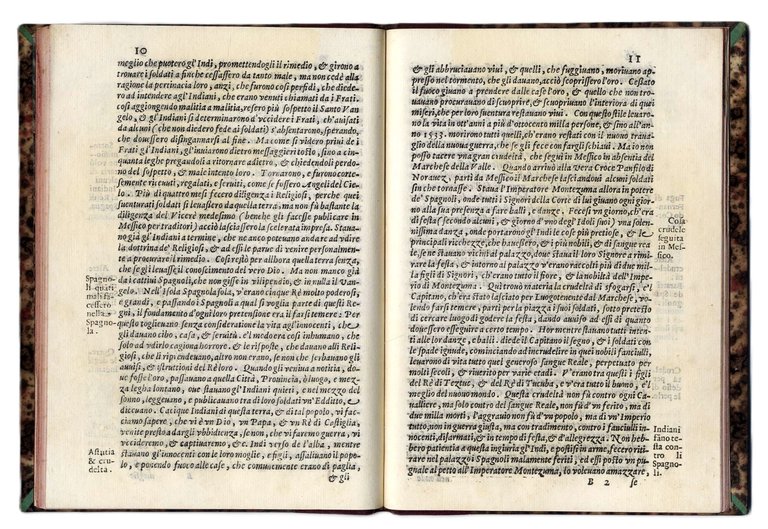 10
meglio che puotero gl'Indi, promettendogli il rimedio, & girono a
trouare i soldati a finche cessassero da tanto male, ma non cedè alla
ragione la pertinacia loro, anzi, che furono così perfidi, che diede-
ro ad intendere agl'Indiani, che erano venuti chiamati da i Frati.
cosi aggiongendo malitia a malitia, resero più sospetto il Santo Van-
gelo, & gl'Indiani si determinarono d'vccidere i Frati, ch'auisati
da alcuni (che non diedero fede ai soldati) s'absentarono, sperando,
che douessero disingannarsi al fine. Ma come si videro priui de i
Frati gl'Indi, gl'inuiarono dietro messaggieri tosto, sino a cin-
quanta leghe pregandoli a ritornare adietro, & chiedendoli perdo-
no del sospetto, & male intento loro. Tornarono, & furono cortese-
mente riceuuti, regalati, e seruiti, come se fossero Angeli del Cie-
lo. Più di quattro mesi fecero diligenza i Religiosi, perche quei
suenturati soldati si leuassero da quella terra, ma non fù bastante la
diligenza del Vicerè medesimo (benche gli facesse publicare in
Messico per traditori) acciò lasciassero la scelerata impresa. Stauano
già gl'Indiani a termine, che ne anco poteuano andare ad vdire
la dottrina de' Religiosi, & ad essi le parue di venire personalmente
a procurare il rimedio. Cosi restò per allhora quella terra senza,
che se gli leuasse il conoscimento del vero Dio. Ma non mancò già
da i cattiui Spagnoli, che non gisse in vilipendio, & in nulla il Van-
gelo. Nell'Isola Spagnola, v'erano cinque Rè molto poderosi,
e grandi, e passando i Spagnoli a qual si voglia parte di questi Re-
gni, il fondamento d'ogni loro pretensione era il farsi temere. Per
questo toglieuano senza consideratione la vita agl'innocenti, che
gli dauano cibo, casa, & seruitù, el medo era così inhumano, che
solo ad vdirlo cagiona horrore, & le risposte, che dauano alli Reli-
giosi, che li riprendeuano, altro non erano, se non che serbauano gli
auuisi, & istruttioni del Rè loro. Quando gli veniua a notitia, do-
ue fosse l'oro, passauano a quella Città, Prouincia, ò luogo, e mez-
za legha lontano, que stauano gl'Indiani quieti, e nel mezzo del
sonno, leggeuano, e publicauano tra di loro soldati vn'Editto, &
diceuano. Catique Indiani di questa terra, & di tal popolo, vi fac-
ciamo sapere, che vi è vn Dio, vn Papa, & vn Rè di Castiglia,
venite presto a dargli vbbidienza, se non, che vi faremo guerra, vi
vccideremo, & captiuaremo &c. Indi verso de l'alba, mentre
stauano gl'innocenti con le loro moglie, e figli, assaliuano il popo-
lo, e ponendo fuoco alle case, che communemente erano di paglia,
& gli
Spagno-
li quati
mali fa-
cessero
nella
Spagno-
la.
Astutia
& cru-
deltà.
11
& gli abbruciauano viui, & quelli, che fuggiuano, moriuano ap-
presso nel tormento, che gli dauano, acciò scoprissero l'oro. Cessato
il fuoco giuano a prendere dalle case l'oro, & quello che non tro-
uauano procurauano di scuoprire, & scuopriuano l'interiora di quei
miseri, che per loro suentura restauano viui. Con questo stile leuaro-
no la vita in ott'anni a più d'ottocento milla persone, & sino all'an-
no 1533. morirono tutti quelli, ch'erano restati con il nuouo trana-
glio della nuoua guerra, che se gli fece con fargli schiaui. Ma io non
posso tacere vna gran crudeltà, che seguì in Messico in absentia del
Marchese della Valle. Quando arriuò alla Vera Croce Panfilo di
Norauez, partì da Messico il Marchese lasciandoui alcuni soldati
sin che tornasse. Staua l'Imperatore Montezuma allora in potere
de' Spagnoli, onde tutti i Signori della Corte di lui giuano ogni giorno
alla sua presenza a fare balli, e danze. Fecesi vn giorno, ch'era
di festa (secondo alcuni, & giorno d'vno degl'Idoli suoi) vna solen-
nissima danza, onde portarono gl'Indi le cose più pretiose, & le
principali ricchezze, che hauessero, & i più nobili, & di sangue rea
le, se ne stauano vicini al palazzo, doue staua il loro Signore a rimi-
rare la festa, & intorno al palazzo v'erano raccolti più di due mil-
la figli di Signori, ch'erano tutto il fiore, & la nobiltà dell'Impe-
rio di Montezuma. Qui trouò materia la crudeltà di sfogarsi, e'l
Capitano, ch'era stato lasciato per Luogotenente dal Marchese, vo-
lendo farsi temere, partì per la piazza i suoi soldati, sotto pretesto
di cercare luogo di godere la festa, dando auuiso ad essi di quanto
douessero esseguire a certo tempo. Hor mentre stauano tutti inten-
ti alle lor danze, e balli, diede il Capitano il segno, & i soldati con
le spade ignude, cominciando ad incrudelire in quei nobili fanciulli,
leuarono di vita tutto quel generoso sangue Reale, perpetuato per
molti secoli, & riuerito per varie etadi. V'erano tra questi i figli
del Rè di Teztuc, & del Rè di Tucuba, e v'era tutto il buono, e'l
meglio del nuouo mondo. Questa crudeltà non fù contro ogni Ca-
ualliere, ma solo contro del sangue Reale, non fù d'vn ferito, ma di
due milla morti, l'aggrauio non fù d'vn popolo, ma di vn'Imperio
tutto, non in guerra giusta, ma con tradimento, contro i fanciulli in-
nocenti, disarmati, & in tempo di festa, & d'allegrezza. Non heb-
bero patientia a questa ingiuria gl'Indi, e postisi in arme, fecero riti-
rare nel palazzo i Spagnoli malamente feriti, ed essi posto vn pu-
gnale al petto all'Imperatore Montezuma, lo voleuano amazzare,
B 2 se
Cosa
crudele
seguita
in Mes-
sico.
Indiani
fano te-
sta con-
tro li
Spagno-
li.